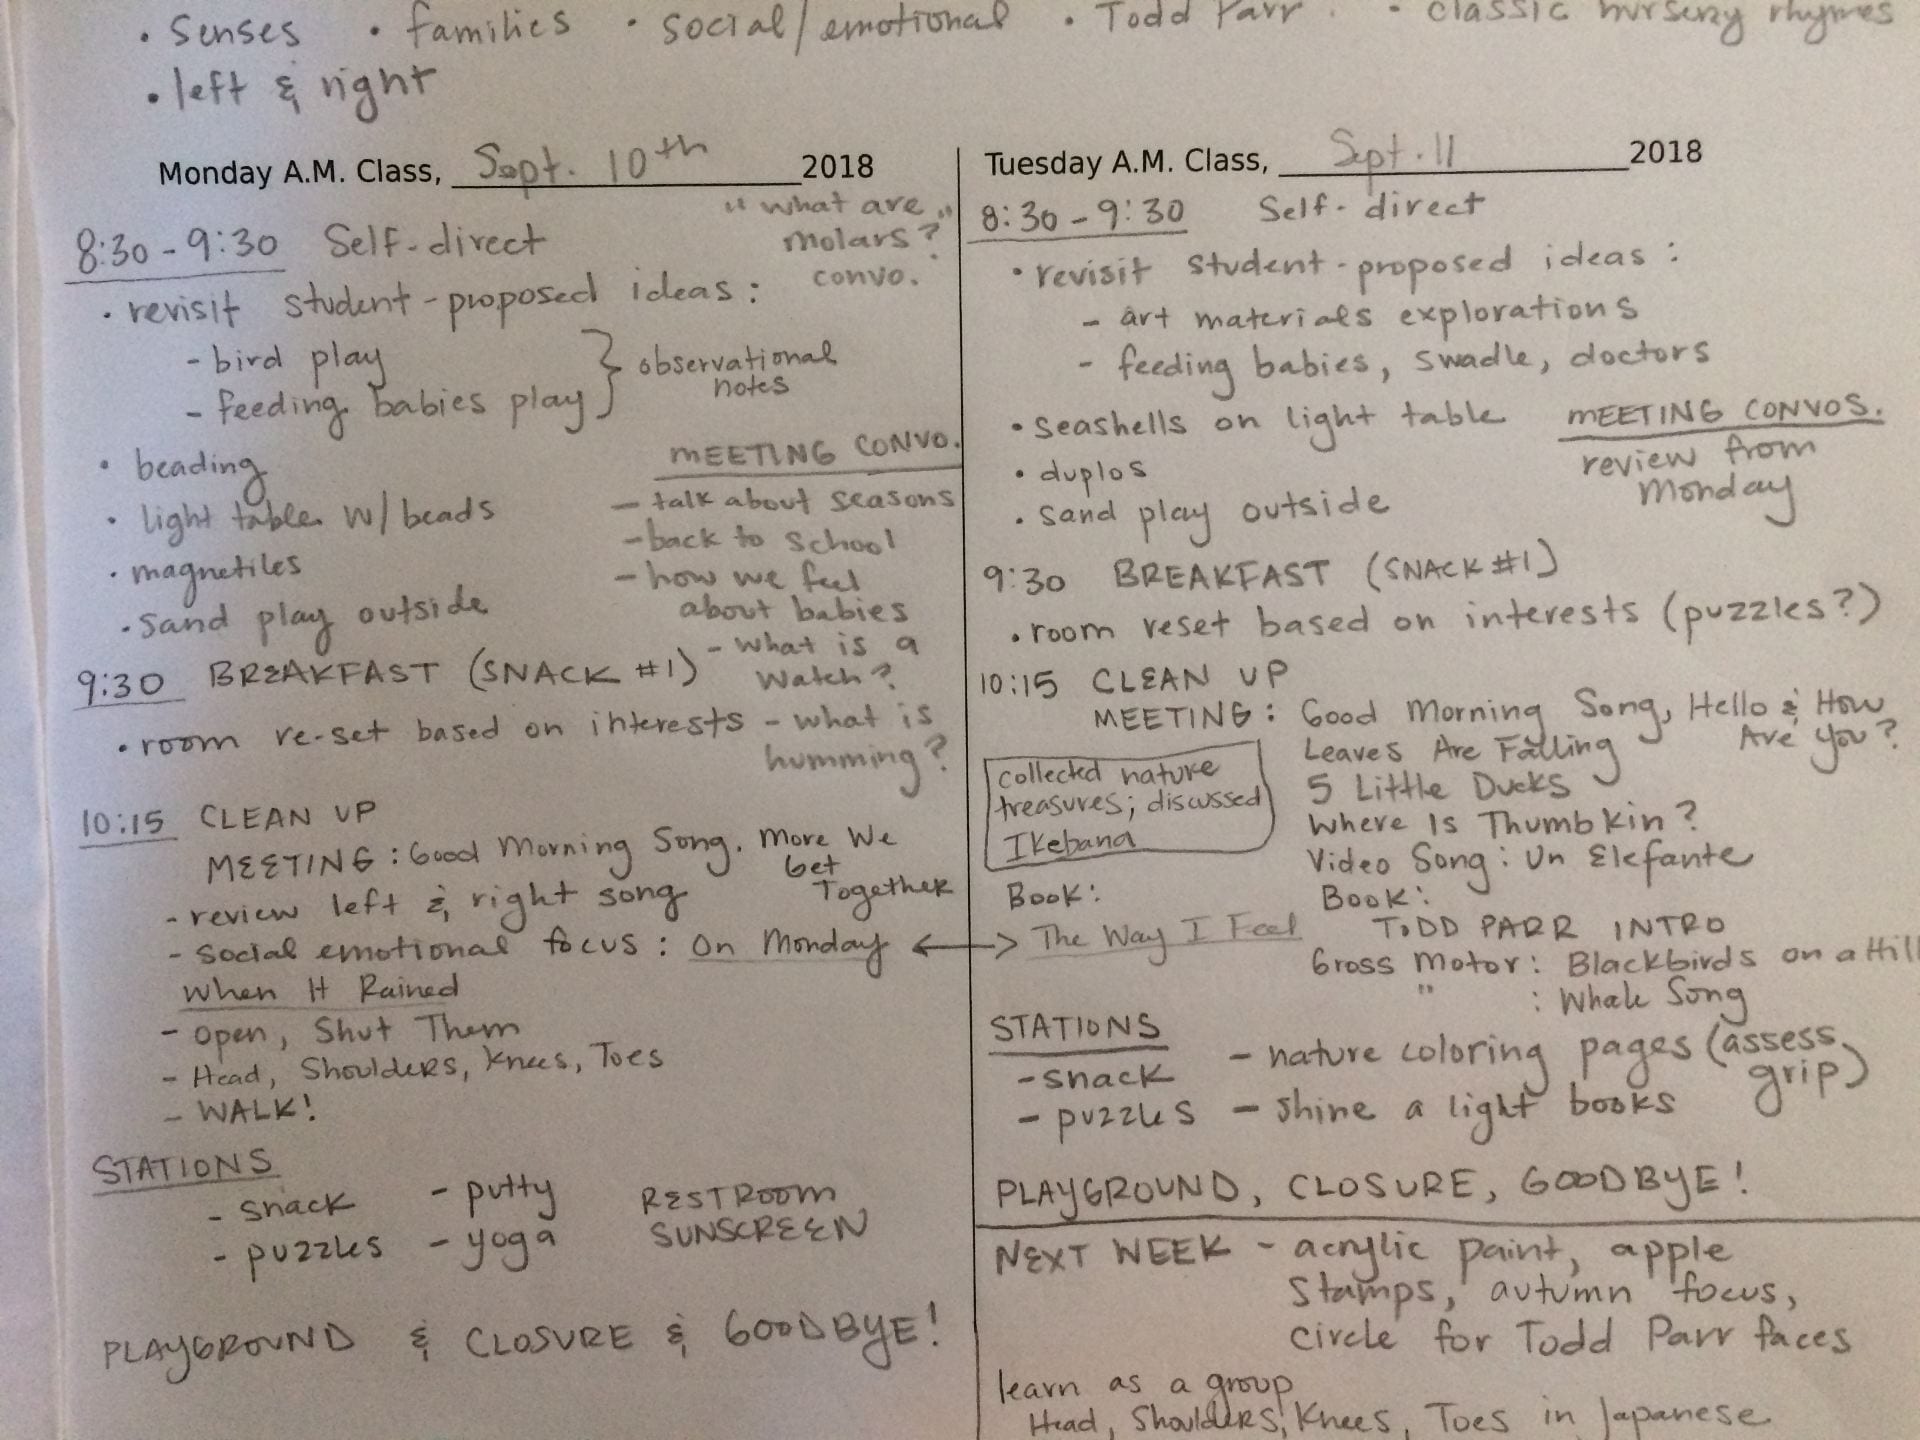 • senses • families • social/emotional • Todd Parr • classic nursery rhymes
• left & right
Monday A.M. Class, Sept. 10th 2018
"what are
molars?"
convo.
8:30 - 9:30 Self-direct
• revisit student-proposed ideas:
- bird play
- feeding babies play
} observational
notes
• beading
• light table w/ beads
• magnetiles
• sand play outside
MEETING CONVO.
- talk about seasons
- back to school
- how we feel
about babies
- what is a
watch?
- what is
humming?
9:30 BREAKFAST (SNACK #1)
• room re-set based on interests
10:15 CLEAN UP
MEETING: Good Morning Song. More We
Get
Together
- review left & right song
- social emotional focus: On Monday ⟷
When It Rained
- Open, Shut Them
- Head, Shoulders, Knees, Toes
- WALK!
STATIONS
- snack - putty RESTROOM
- puzzles - yoga SUNSCREEN
PLAYGROUND & CLOSURE & GOODBYE!
Tuesday A.M. Class, Sept. 11 2018
8:30 - 9:30 Self-direct
• revisit student-proposed ideas:
- art materials explorations
- feeding babies, swadle, doctors
• seashells on light table
• duplos
• sand play outside
MEETING CONVOS.
review from
Monday
9:30 BREAKFAST (SNACK #1)
• room reset based on interests (puzzles?)
10:15 CLEAN UP
MEETING: Good Morning Song, Hello & How
Are You?
Leaves Are Falling
5 Little Ducks
Where Is Thumbkin?
Video Song: Un Elefante
collected nature
treasures; discussed
Ikebana
Book:
The Way I Feel
Book:
TODD PARR INTRO
Gross Motor: Blackbirds on a Hill
" : Whale Song
STATIONS
- snack - nature coloring pages (assess
grip)
- puzzles - shine a light books
PLAYGROUND, CLOSURE, GOODBYE!
NEXT WEEK - acrylic paint, apple
stamps, autumn focus,
circle for Todd Parr faces
learn as a group
Head, Shoulders, Knees, Toes in Japanese